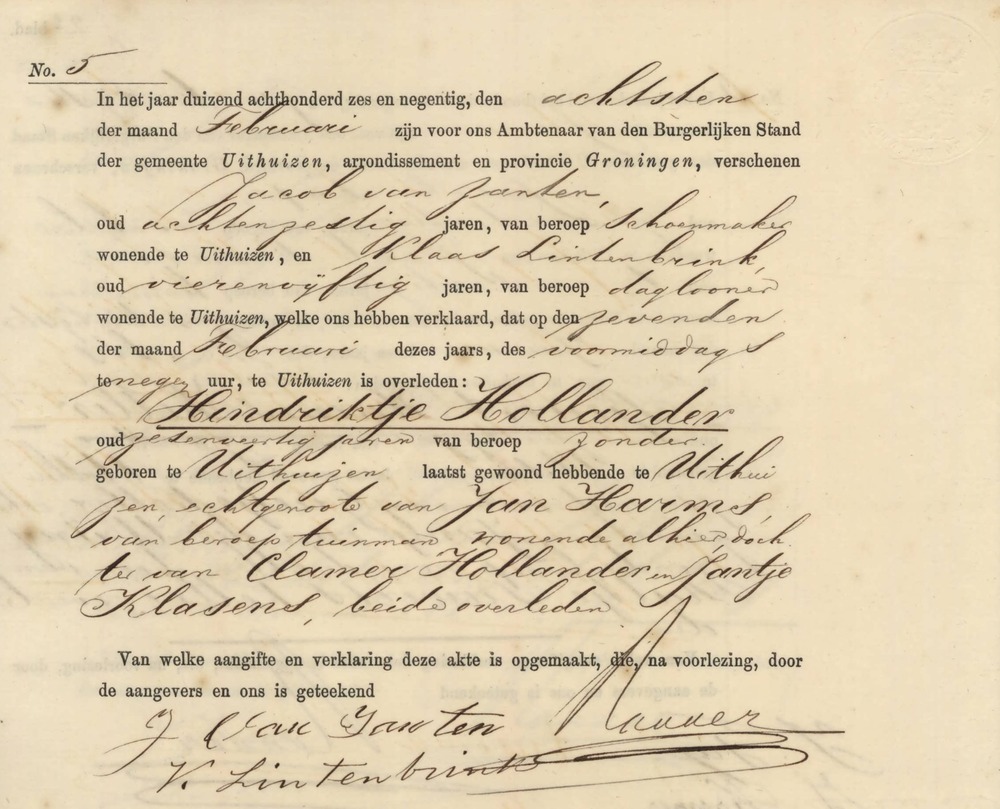 No. 5
In het jaar duizend achthonderd zes en negentig, den achtsten
der maand Februari zijn voor ons Ambtenaar van den Burgerlijken Stand
der gemeente Uithuizen, arrondissement en provincie Groningen, verschenen
Jacob van Zanten,
oud achtenzestig jaren, van beroep schoenmaker
wonende te Uithuizen, en Klaas Lintenbrink,
oud vierenvijftig jaren, van beroep daglooner
wonende te Uithuizen, welke ons hebben verklaard, dat op den zevenden
der maand Februari dezes jaars, des voormiddags
te negen uur, te Uithuizen is overleden:
Hindriktje Hollander
oud zesenveertig jaren van beroep zonder
geboren te Uithuizen laatst gewoond hebbende te Uithui
zen, echtgenoote van Jan Harms,
van beroep tuinman wonende alhier, doch
ter van Clamer Hollander en Jantje
Klasens, beide overleden
Van welke aangifte en verklaring deze akte is opgemaakt, die, na voorlezing, door
de aangevers en ons is geteekend
J Van Zanten
K. Lintenbrink